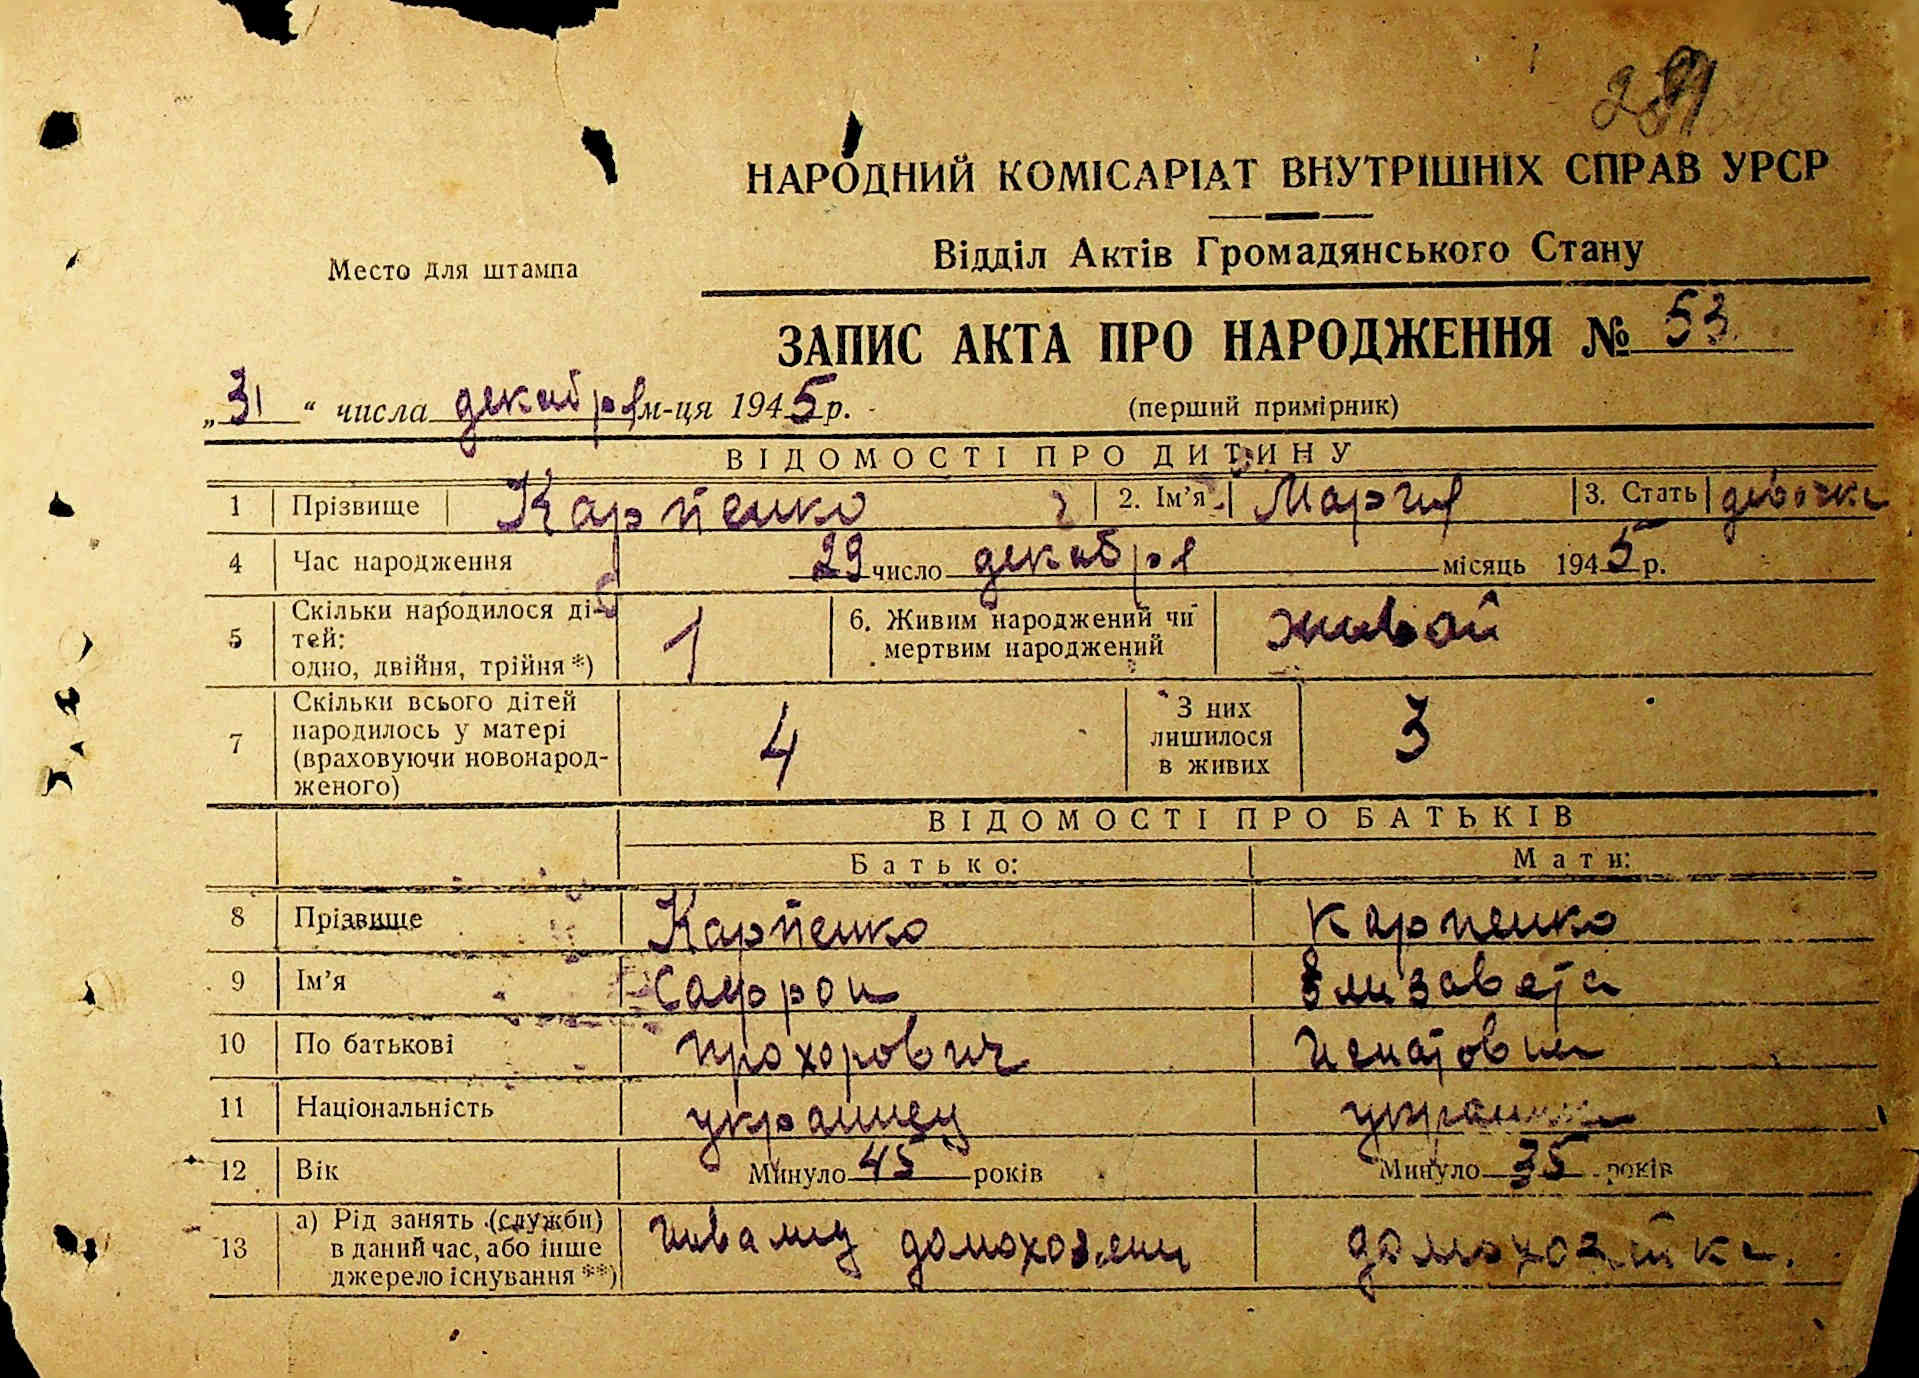 НАРОДНИЙ КОМІСАРІАТ ВНУТРІШНІХ СПРАВ УРСР
Відділ Актів Громадянського Стану
Место для штампа
ЗАПИС АКТА ПРО НАРОДЖЕННЯ № 53
„31“ числа декабря м-ця 1945 р.
(перший примірник)
ВІДОМОСТІ ПРО ДИТИНУ
1 Прізвище Карпенко 2. Ім’я Мария 3. Стать девочка
4 Час народження 29 число декабря місяць 1945 р.
5 Скільки народилося ді-
тей:
одно, двійня, трійня *) 1
6. Живим народжений чи
мертвим народжений живой
7 Скільки всього дітей
народилось у матері
(враховуючи новонарод-
женого) 4
З них
лишилося
в живих 3
ВІДОМОСТІ ПРО БАТЬКІВ
Батько: Мати:
8 Прізвище Карпенко Карпенко
9 Ім’я Сафрон Елизавета
10 По батькові Прохорович Игнатовна
11 Національність украинец украинка
12 Вік Минуло 45 років Минуло 35 років
13 а) Рід занять (служби)
в даний час, або інше
джерело існування **)
домохозяйка.